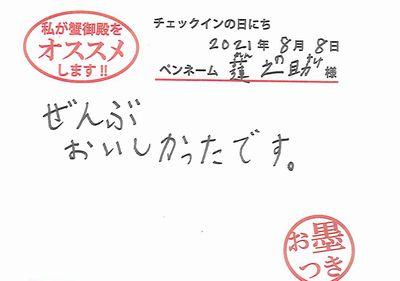 私が蟹御殿を
オススメ
します!!
チェックインの日にち
2021年8月8日
ペンネーム 蓮之助様
れん の すけ
ぜんぶ
おいしかったです。
お墨
つき